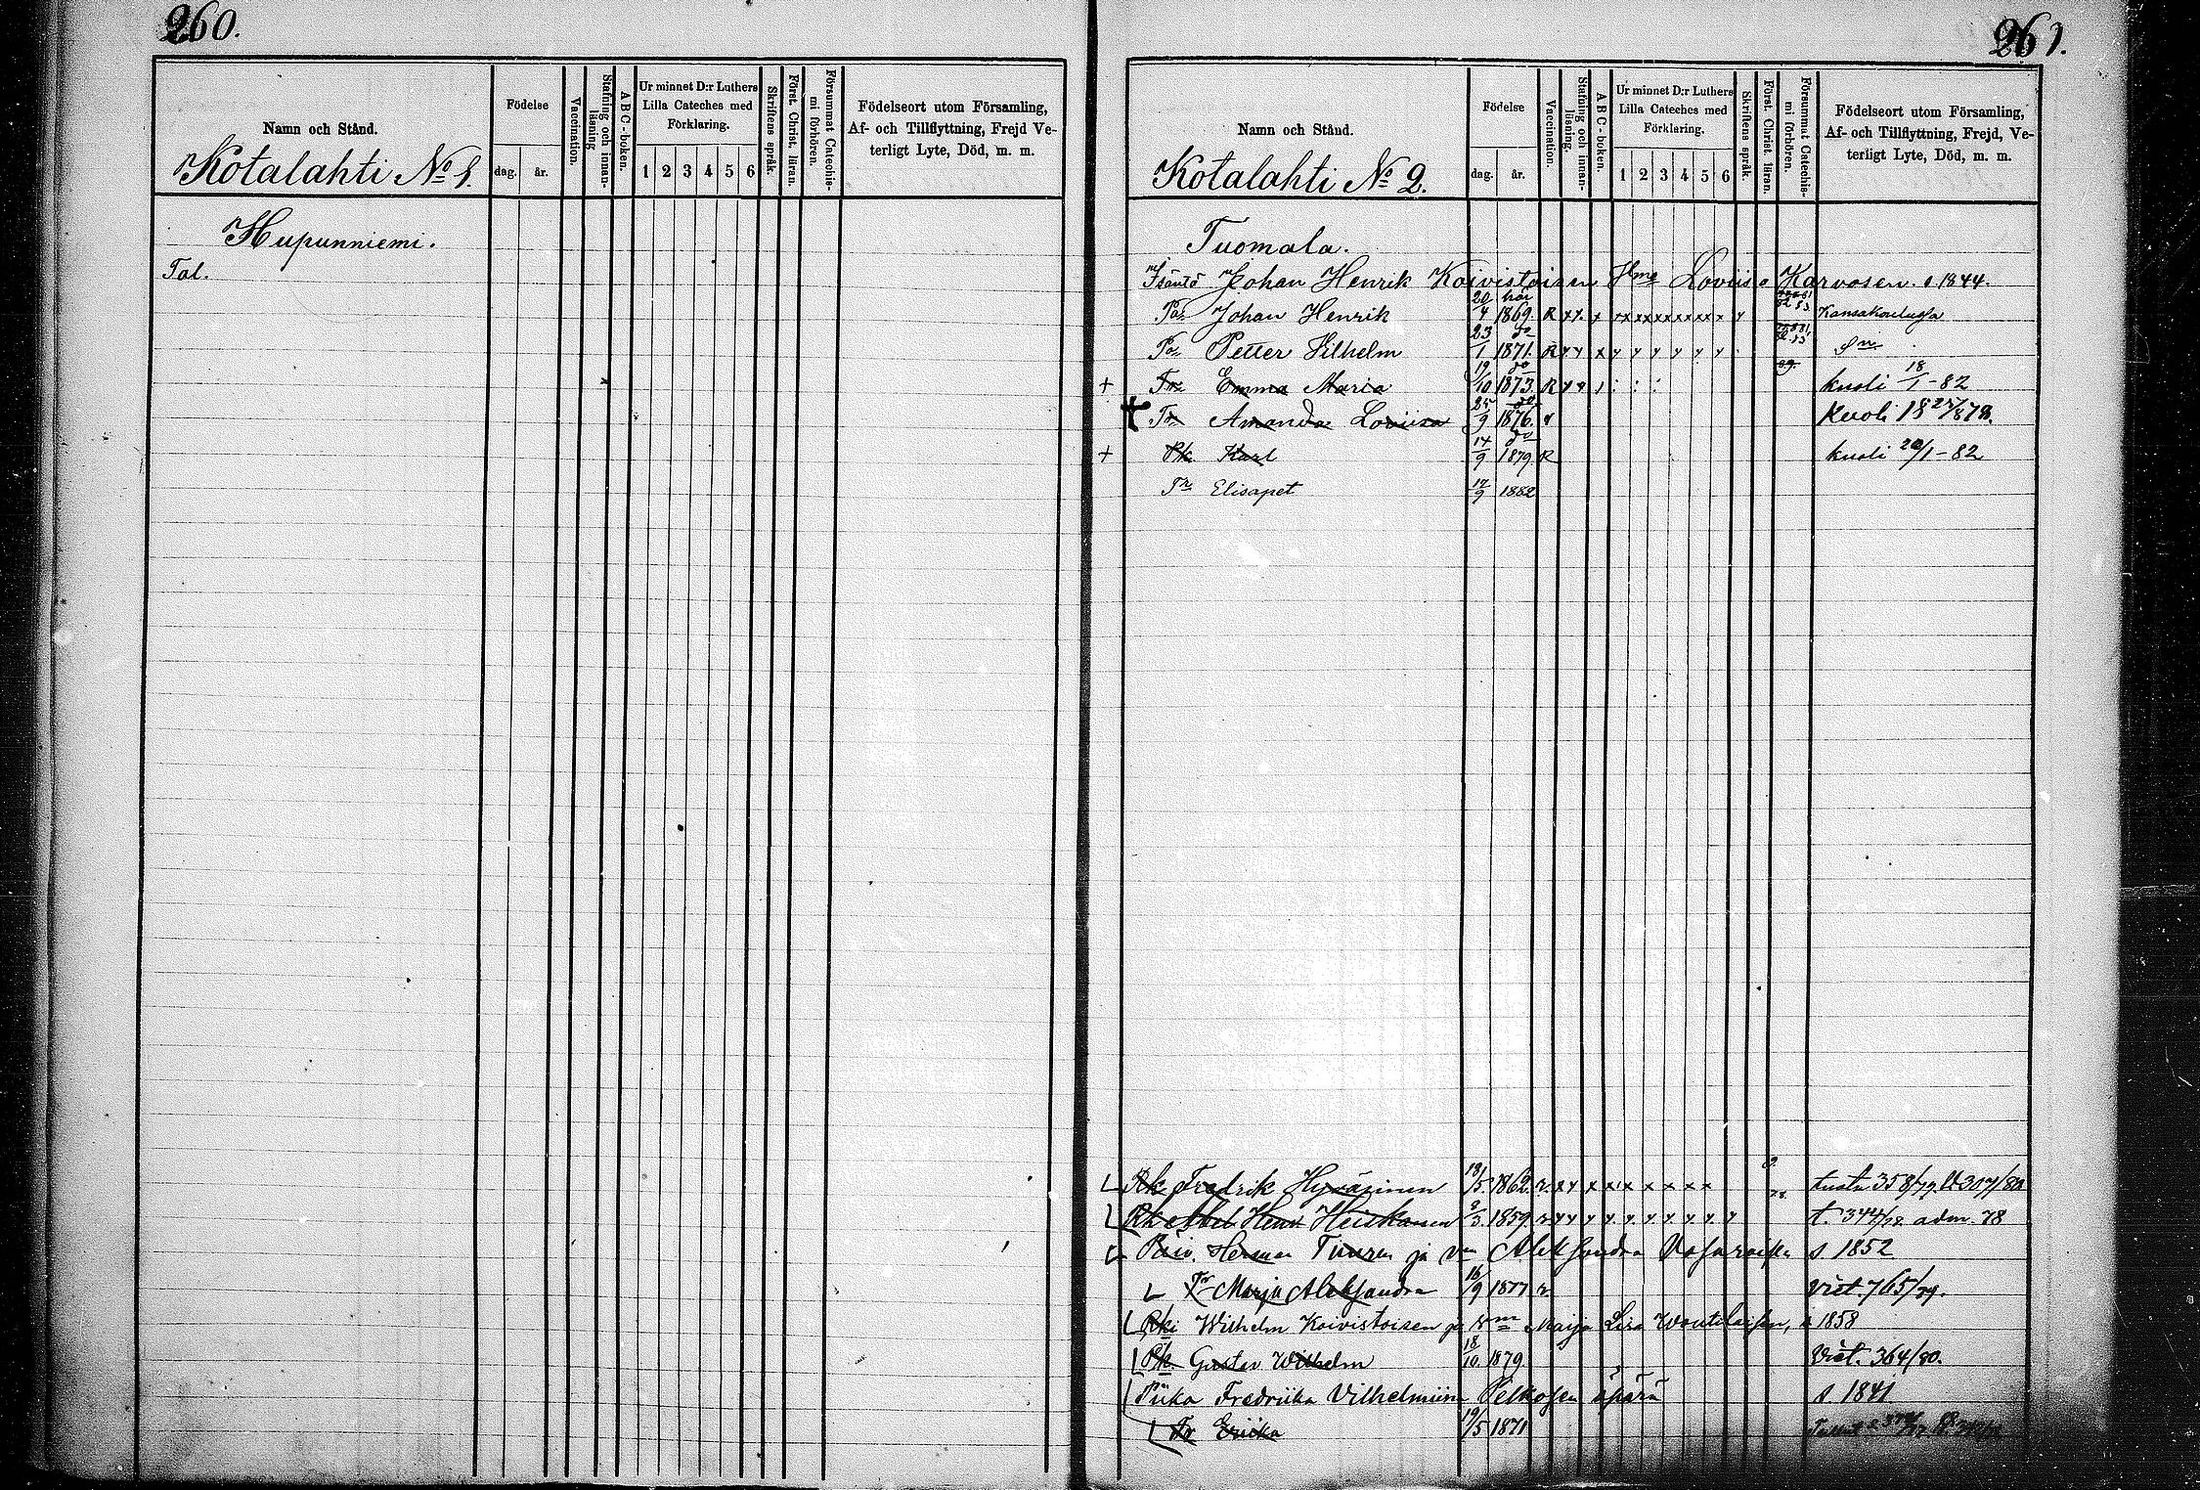 260.
Namn och Stånd.
Kotalahti No 1.
Födelse
dag. år.
Vaccination.
Stafning och innan-läsning
ABC-boken.
Ur minnet D:r Luthers
Lilla Cateches med
Förklaring.
1 2 3 4 5 6
Skriftens språk.
Först. Christ. läran.
Försummat Catechis-mi förhören.
Födelseort utom Församling,
Af- och Tillflyttning, Frejd Ve-
terligt Lyte, Död, m. m.
Hupunniemi.
Tal.
261.
Namn och Stånd.
Kotalahti No 2.
Födelse
dag. år.
Vaccination.
Stafning och innan-läsning.
ABC-boken.
Ur minnet D:r Luthers
Lilla Cateches med
Förklaring.
1 2 3 4 5 6
Skriftens språk.
Först. Christ. läran.
Försummat Catechis-mi förhören.
Födelseort utom Församling,
Af- och Tillflyttning, Frejd, Ve-
terligt Lyte, Död, m. m.
Tuomala.
Isäntä Johan Henrik Koivistoisen Loviisa Karvosen s 1844.
Johan Henrik 20/4 1869. R
Petter Vilhelm 23/1 1871. R
+ Tr Emma Maria 19/10 1873. R kuoli 18/1-82
Tr Amanda Loviisa 25/9 1876. kuoli
+ Pk Karl 14/9 1879. R kuoli 20/1-82
Tr Elisapet 17/9 1882
Rk Fredrik Hyvärinen 18/5 1862. 358/79. 307/80
Rk Abel Henr Heiskanen 2/3 1859. t. 344/78. adm. 78
Herman Tuuren ja Vm Aleksandra s. 1852
Tr Marja Aleksandra 16/9 1877 r vist. 765/79.
Rki Wilhelm Koivistoisen ja Vm Maija Lisa Woutilaisen, s 1858
Pk Gustav Wilhelm 18/10 1879 Vist. 364/80.
Piika Fredriika Vilhelmiina Pelkosen äpärä s. 1841
Tr Ericka 19/5 1871